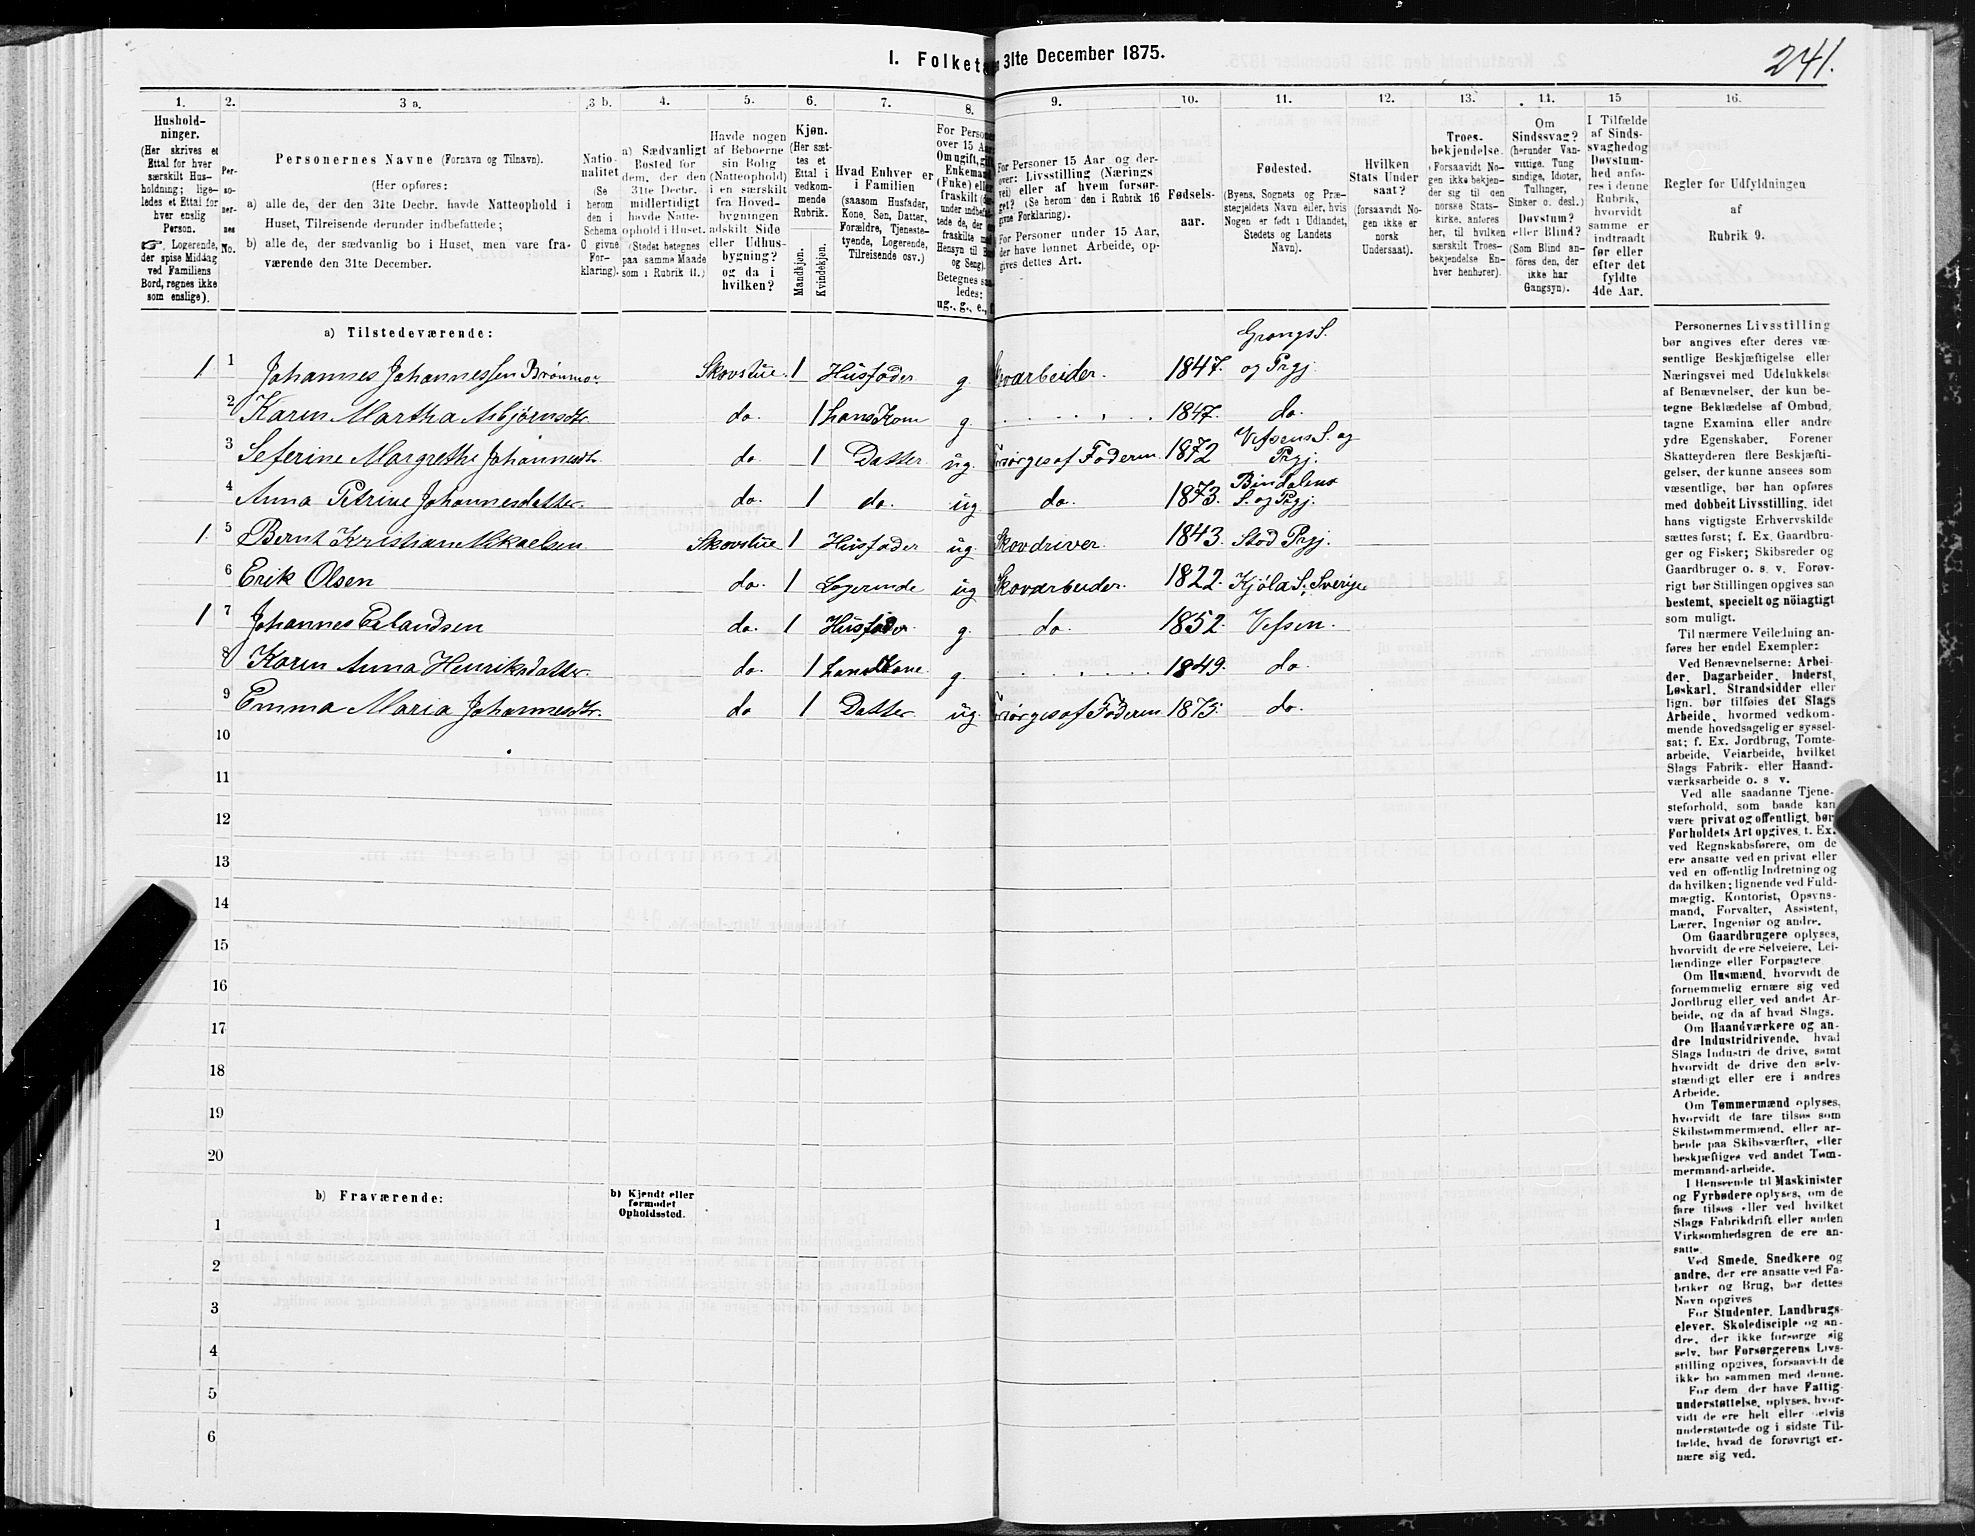 I. Folketæ 31lte December 1875.
241.
1. 2. 3 a. 3 b. 4. 5. 6. 7. 8. 9. 10. 11. 12. 13. 14. 15 16.
Hushold-
ninger.
(Her skrives et
Ettal for hver
særskilt Hus-
holdning; lige-
ledes et Ettal for
hver enslig
Person.
☞ Logerende,
der spise Middag
ved Familiens
Bord, regnes ikke
som enslige).
Per-
so-
ner-
nes
No.
Personernes Navne (Fornavn og Tilnavn).
(Her opføres:
a) alle de, der den 31te Decbr. havde Natteophold i
Huset, Tilreisende derunder indbefattede;
b) alle de, der sædvanlig bo i Huset, men vare fra-
værende den 31te December.
Natio-
nalitet
(Se
herom
den i
Schema
C givne
For-
klaring).
a) Sædvanligt
Bosted for
dem, der den
31te Decbr.
midlertidigt
havde Natte-
ophold i Huset.
(Stedet betegnes
paa samme Maade
som i Rubrik 11.)
Havde nogen
af Beboerne
sin Bolig
(Natteophold)
i en særskilt
fra Hoved-
bygningen
adskilt Side
eller Udhus-
bygning?
og da i
hvilken?
Kjøn.
(Her sæt-
tes et
Ettal i
vedkom-
mende
Rubrik.
Mandkjøn.
Kvindekjøn.
Hvad Enhver er
i Familien
(saasom Husfader,
Kone, Søn, Datter,
Forældre, Tjeneste-
tyende, Logerende,
Tilreisende osv.)
For Persone
over 15 Aa
Om ugift, gif
Enkemand
(Enke) elle
fraskilt
Hensyn til
og Seng).
Betegnes
ledes:
ug., g., e.,
For Personer 15 Aar og der-
over: Livsstilling (Nærings-
vei) eller af hvem forsør-
get? (Se herom den i Rubrik 16
givne Forklaring).
For Personer under 15 Aar,
der have lønnet Arbeide, op-
gives dettes Art.
Fødsels-
aar.
Fødested.
(Byens, Sognets og Præ-
stegjeldets Navn eller, hvis
Nogen er født i Udlandet,
Stedets og Landets
Navn).
Hvilken
Stats Under
saat?
(forsaavidt No-
gen ikke er
norsk
Undersaat).
Troes-
bekjendelse.
(Forsaavidt No-
gen ikke bekjen-
der sig til den
norske Stats-
kirke, anføres
her, til hvilken
særskilt Troes-
bekjendelse En-
hver henhører).
Om
Sindssvag?
(herunder Van-
vittige, Tung
sindige, Idioter,
Tullinger,
Sinker o. desl.)
Døvstum?
eller Blind?
(Som Blind an-
føres den, der
ikke har
Gangsyn).
I Tilfælde
af Sinds-
svaghedog
Døvstum-
hed anfø-
res i denne
Rubrik,
hvorvidt
samme er
indtraadt
før eller
efter det
fyldte
4de Aar.
Regler for Udfyldningen
af
Rubrik 9.
a) Tilstedeværende:
1 1 Johannes Johannessen Skovstue. 1 Husfader g. Skovarbeider. 1847. Grongs S. og Prgj.
2 Karen Martha Asbjørnsdtr. do. 1 hans Kone g. 1847. do.
3 Seferine Margrethe Johannesdtr. do. 1 Datter ug. Forsørges af Faderen 1872 Vefsens S. og Prgj.
4 Anna Petrine Johannesdatter. do. 1 do. ug. do. 1873. Bindalens S. og Prgj.
1 5 Bernt Kristian Mikaelsen Skovstue 1 Husfader ug. Skovdriver. 1843. Stod Prgj.
6 Erik Olsen do. 1 Logerende ug Skovarbeider. 1822. Kjøla S., Sverige
1 7 Johannes Erlandsen do. 1 Husfader. g. do. 1852. Vefsen.
8 Karen Anna Henriksdatter. do. 1 hans Kone. g. 1849. do.
9 Emma Maria Johannesdtr. do 1 Datter. ug. Forsørges af Faderen 1875. do.
10
11
12
13
14
15
16
17
18
19
20
b) Fraværende:
b) Kjendt eller
formodet
Opholdssted.
1
2
3
4
5
6
Personernes Livsstilling
bør angives efter deres væ-
sentlige Beskjæftigelse eller
Næringsvei med Udelukkelse
af Benævnelser, der kun be-
tegne Beklædelse af Ombud,
tagne Examina eller andre
ydre Egenskaber. Forener
Skatteyderen flere Beskjæfti-
gelser, der kunne ansees som
væsentlige, bør han opføres
med dobbelt Livsstilling, idet
hans vigtigste Erhvervskilde
sættes først; f. Ex. Gaardbru-
ger og Fisker; Skibsreder og
Gaardbruger o. s. v. Forøv-
rigt bør Stillingen opgives saa
bestemt, specielt og nöiagtigt
som muligt.
Til nærmere Veiledning an-
føres her endel Exempler:
Ved Benævnelserne: Arbei-
der. Dagarbeider. Inderst,
Løskarl. Strandsidder eller
lign. bør tilføies det Slags
Arbeide, hvormed vedkom-
mende hovedsagelig er syssel-
sat; f. Ex. Jordbrug, Tomte-
arbeide, Veiarbeide, hvilket
Slags Fabrik- eller Haand-
værksarbeide o. s v.
Ved alle saadanne Tjene-
steforhold, som baade kan
være privat og offentligt, bør
Forholdets Art opgives, t. Ex.
ved Regnskabsførere, om de
ere ansatte ved en privat eller
ved en offentlig Indretning og
da hvilken; lignende ved Fuld-
mægtig, Kontorist, Opsyns-
mand, Forvalter, Assistent,
Lærer, Ingeniør og andre.
Om Gaardbrugere oplyses,
hvorvidt de ere Selveiere, Lei-
lændinge eller Forpagtere
Om Husmænd, hvorvidt de
fornemmelig ernære sig ved
Jordbrug eller ved andet Ar-
beide, og da af hvad Slags.
Om Haandværkere og an-
dre Industridrivende, hvad
Slags Industri de drive, samt
hvorvidt de drive den selv-
stændigt eller ere i andres
Arbeide.
Om Tømmermænd oplyses,
hvorvidt de fare tilsøs som
Skibstømmermænd, eller ar-
beide paa Skibsværfter, eller
beskjæftiges ved andet Tøm-
mermand-arbeide.
I Henseende til Maskinister
og Fyrbødere oplyses, om de
fare tilsøs eller ved hvilket
Slags Fabrikdrift eller anden
Virksomhedsgren de ere an-
satte.
Ved Smede. Snedkere og
andre, der ere ansatte ved Fa-
briker og Brug, bør dettes
Navn opgives
For Studenter, Landbrugs-
elever, Skoledisciple og an-
dre, der ikke forsørge sig
selv, bør Forsørgerens Livs-
stilling opgives, forsaavidt de
ikke bo sammen med denne.
For dem, der have Fattig-
understøttelse, oplyses, hvor-
vidt de ere helt eller delvis
understøttede og i sidste Til-
fælde, hvad de forøvrigt er-
nære sig ved.